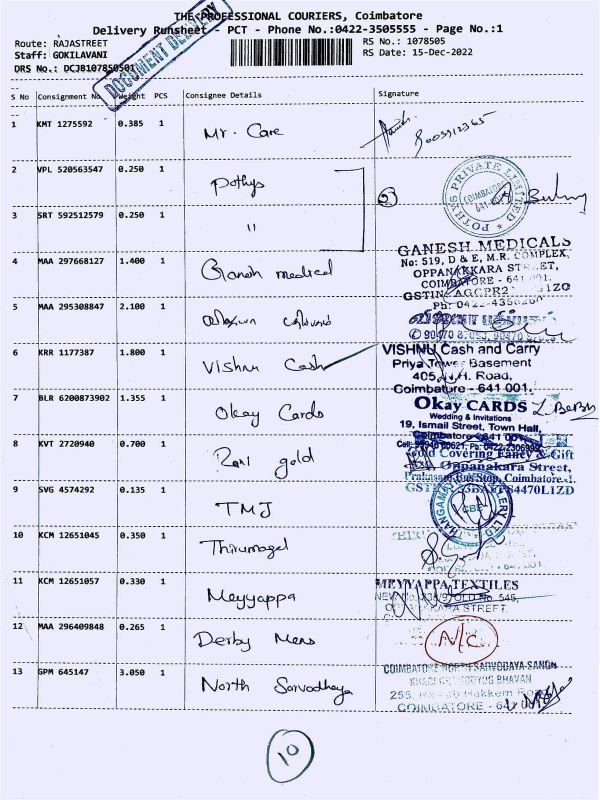 THE PROFESSIONAL COURIERS, Coimbatore
Delivery Runsheet - PCT - Phone No.:0422-3505555 - Page No.:1
Route: RAJASTREET
RS No.: 1078505
Staff: GOKILAVANI
RS Date: 15-Dec-2022
DRS No.: DCJB107850501
DOCUMENT DELIVERY
S No Consignment No Weight PCS Consignee Details Signature
1 KMT 1275592 0.385 1 Mr. Care
2 VPL 520563547 0.250 1 Pothys
POTHYS PRIVATE LIMITED COIMBATORE 641 001
3 SRT 592512579 0.250 1 "
4 MAA 297668127 1.400 1 Ganesh medical
GANESH MEDICALS
No: 519, D & E, M.R. COMPLEX,
OPPANAKKARA STREET,
COIMBATORE - 641 001.
5 MAA 295308847 2.100 1
6 KRR 1177387 1.800 1 Vishnu Cash
VISHNU Cash and Carry
Priya Tower Basement
405, N.H. Road,
Coimbatore - 641 001.
7 BLR 6200873902 1.355 1 Okay Cards
Okay CARDS
Wedding & Invitations
19, Ismail Street, Town Hall,
Coimbatore - 641 001.
8 KVT 2720940 0.700 1 Rani gold
Gold Covering Fancy & Gift
Oppanakara Street,
Prakasam Bus Stop, Coimbatore-1.
9 SVG 4574292 0.135 1 TMJ
10 KCM 12651045 0.350 1 Thirumagal
11 KCM 12651057 0.330 1 Meyyappa
MEYYAPPA TEXTILES
12 MAA 296409848 0.265 1 Derby Mens
N/C
13 GPM 645147 3.050 1 North Sarvodhaya
COIMBATORE NORTH SARVODAYA SANGH
COIMBATORE - 641 001
10